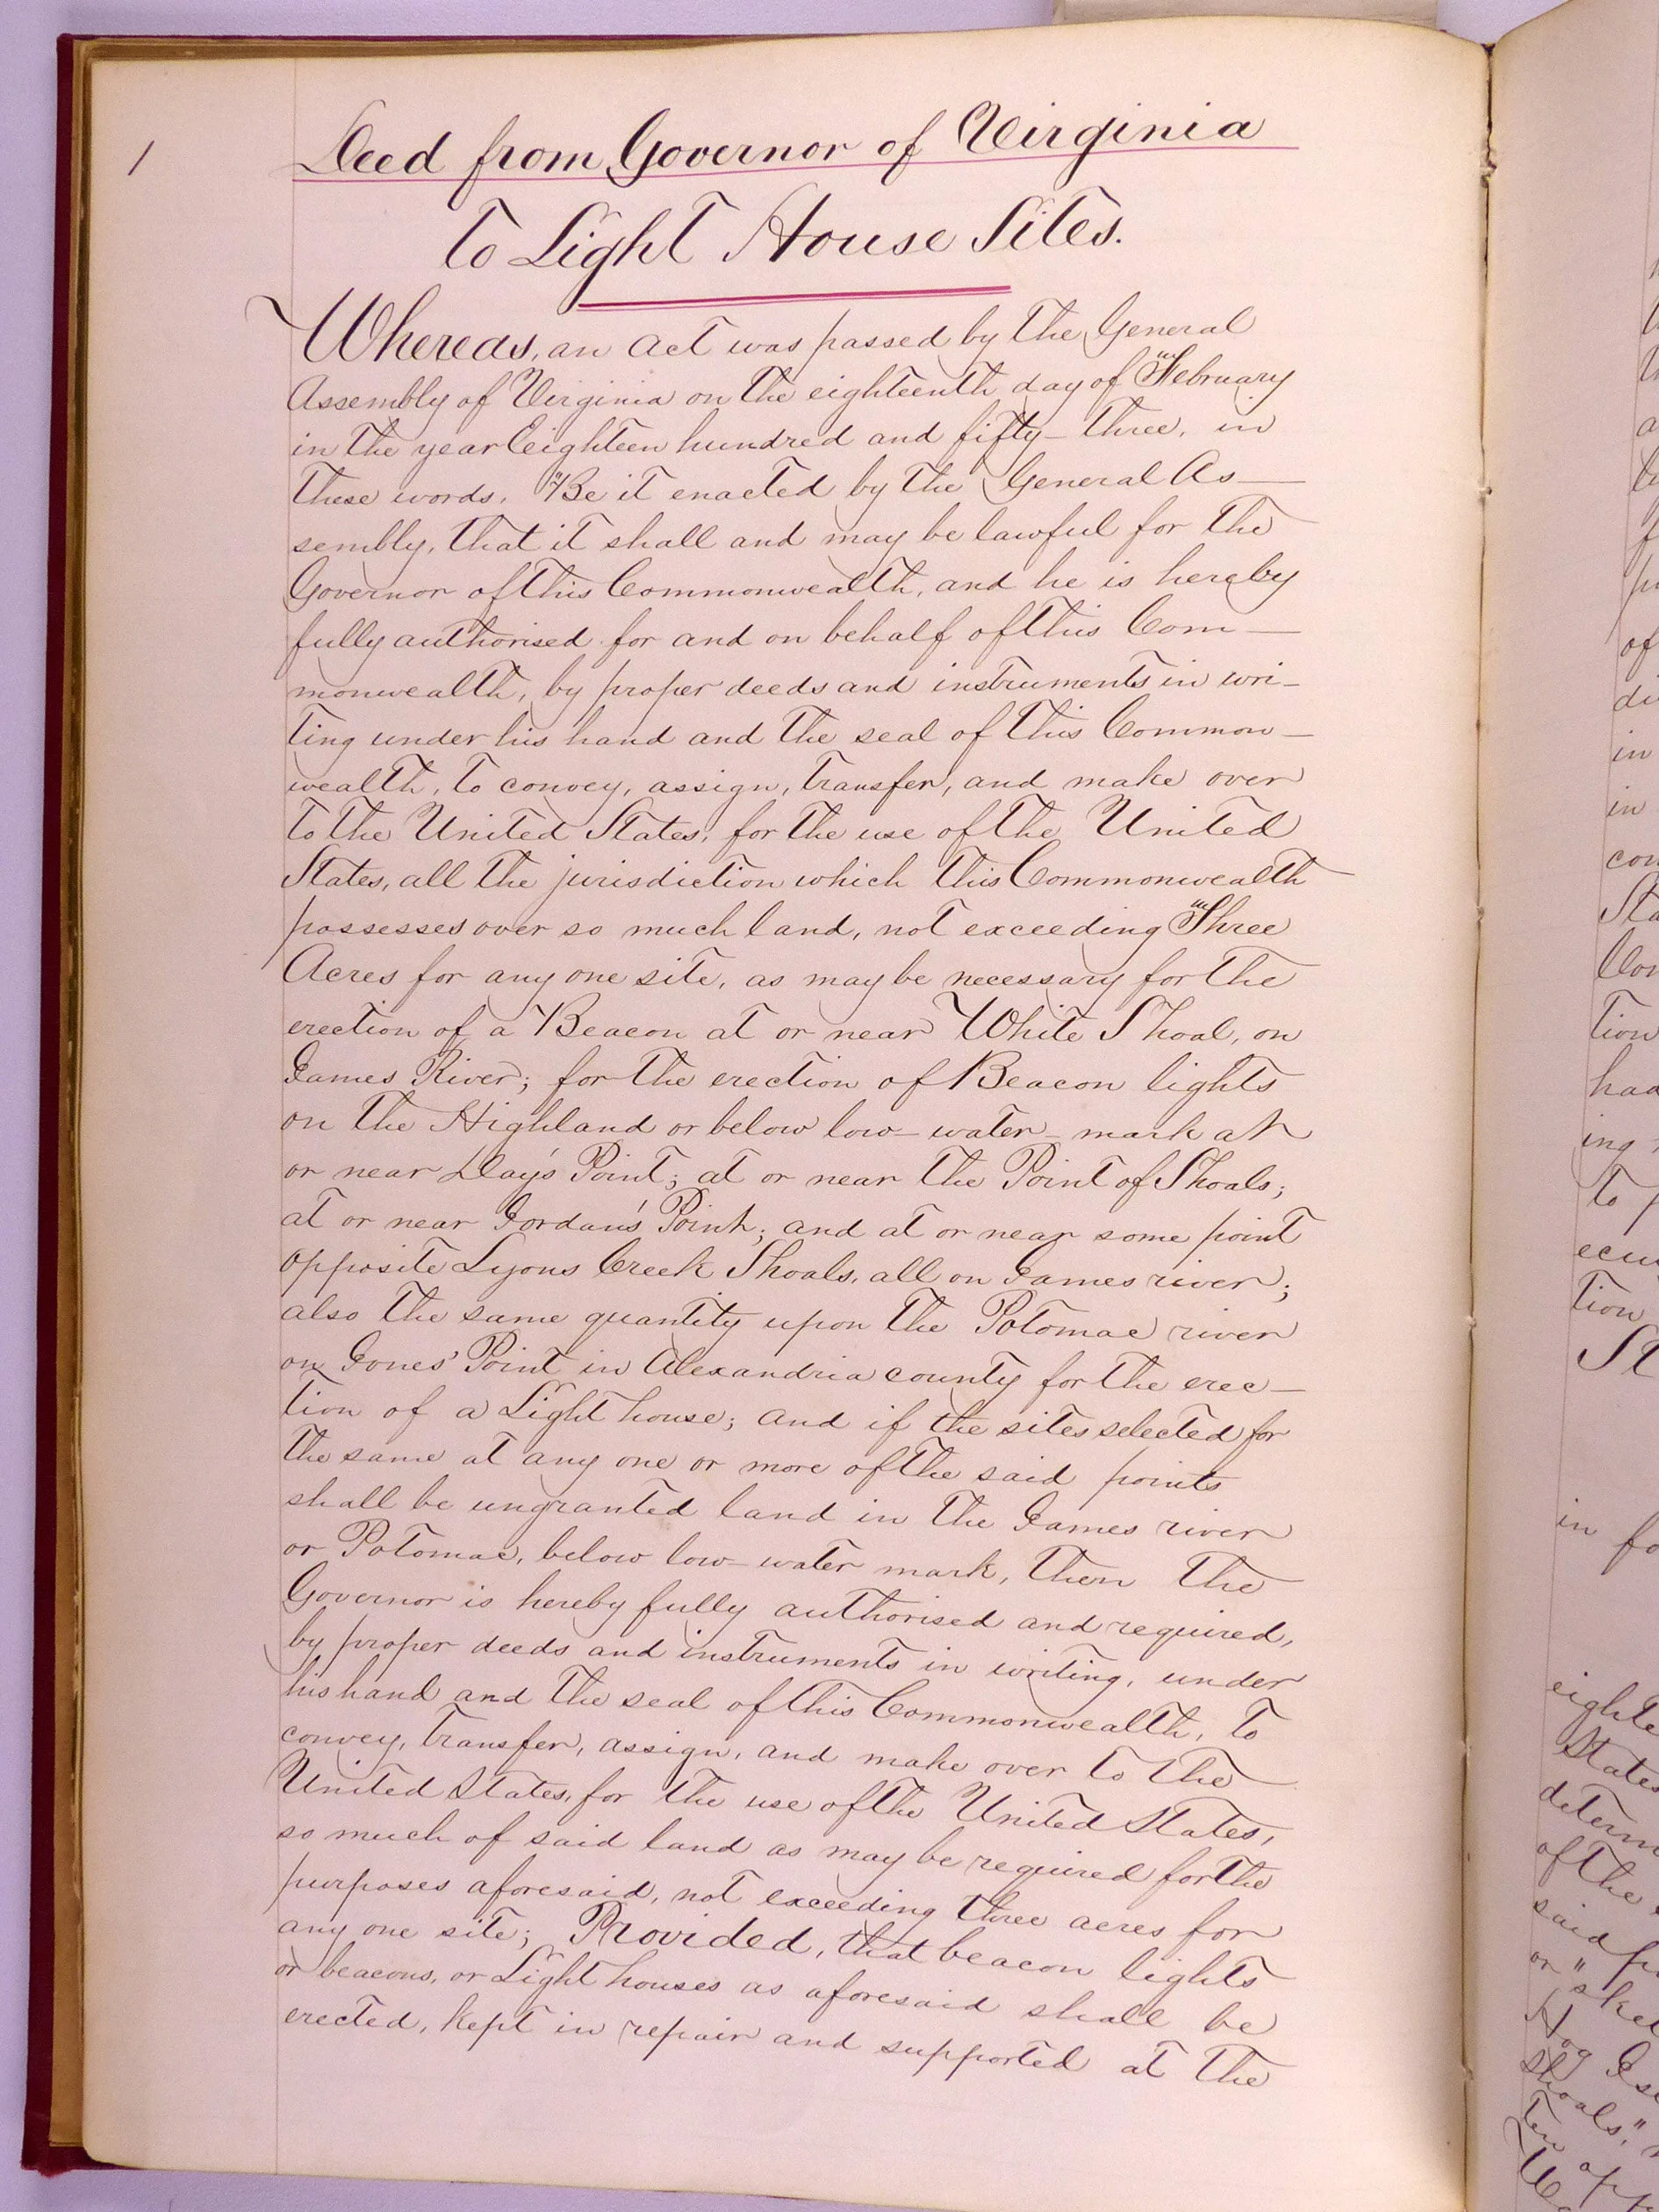 1
Deed from Governor of Virginia
To Light House Sites.
Whereas, an act was passed by the General
Assembly of Virginia on the eighteenth day of February
in the year Eighteen hundred and fifty-three, in
these words. "Be it enacted by the General As-
sembly, that it shall and may be lawful for the
Governor of this Commonwealth, and he is hereby
fully authorised for and on behalf of this Com-
monwealth, by proper deeds and instruments in wri-
ting under his hand and the seal of this Common-
wealth, to convey, assign, transfer, and make over
to the United States, for the use of the United
States, all the jurisdiction which this Commonwealth
possesses over so much land, not exceeding Three
Acres for any one site, as may be necessary for the
erection of a Beacon at or near White Shoal, on
James River; for the erection of Beacon lights
on the Highland or below low-water-mark at
or near Day's Point; at or near the Point of Shoals;
at or near Jordan's Point; and at or near some point
opposite Lyons Creek Shoals, all on James river;
also the same quantity upon the Potomac river
on Jones' Point in Alexandria county for the erec-
tion of a Light house; and if the sites selected for
the same at any one or more of the said points
shall be ungranted land in the James river
or Potomac, below low-water mark, then the
Governor is hereby fully authorised and required,
by proper deeds and instruments in writing, under
his hand and the seal of this Commonwealth, to
convey, transfer, assign, and make over to the
United States, for the use of the United States,
so much of said land as may be required for the
purposes aforesaid, not exceeding three acres for
any one site; Provided, that beacon lights
or beacons, or Light houses as aforesaid shall be
erected, kept in repair and supported at the